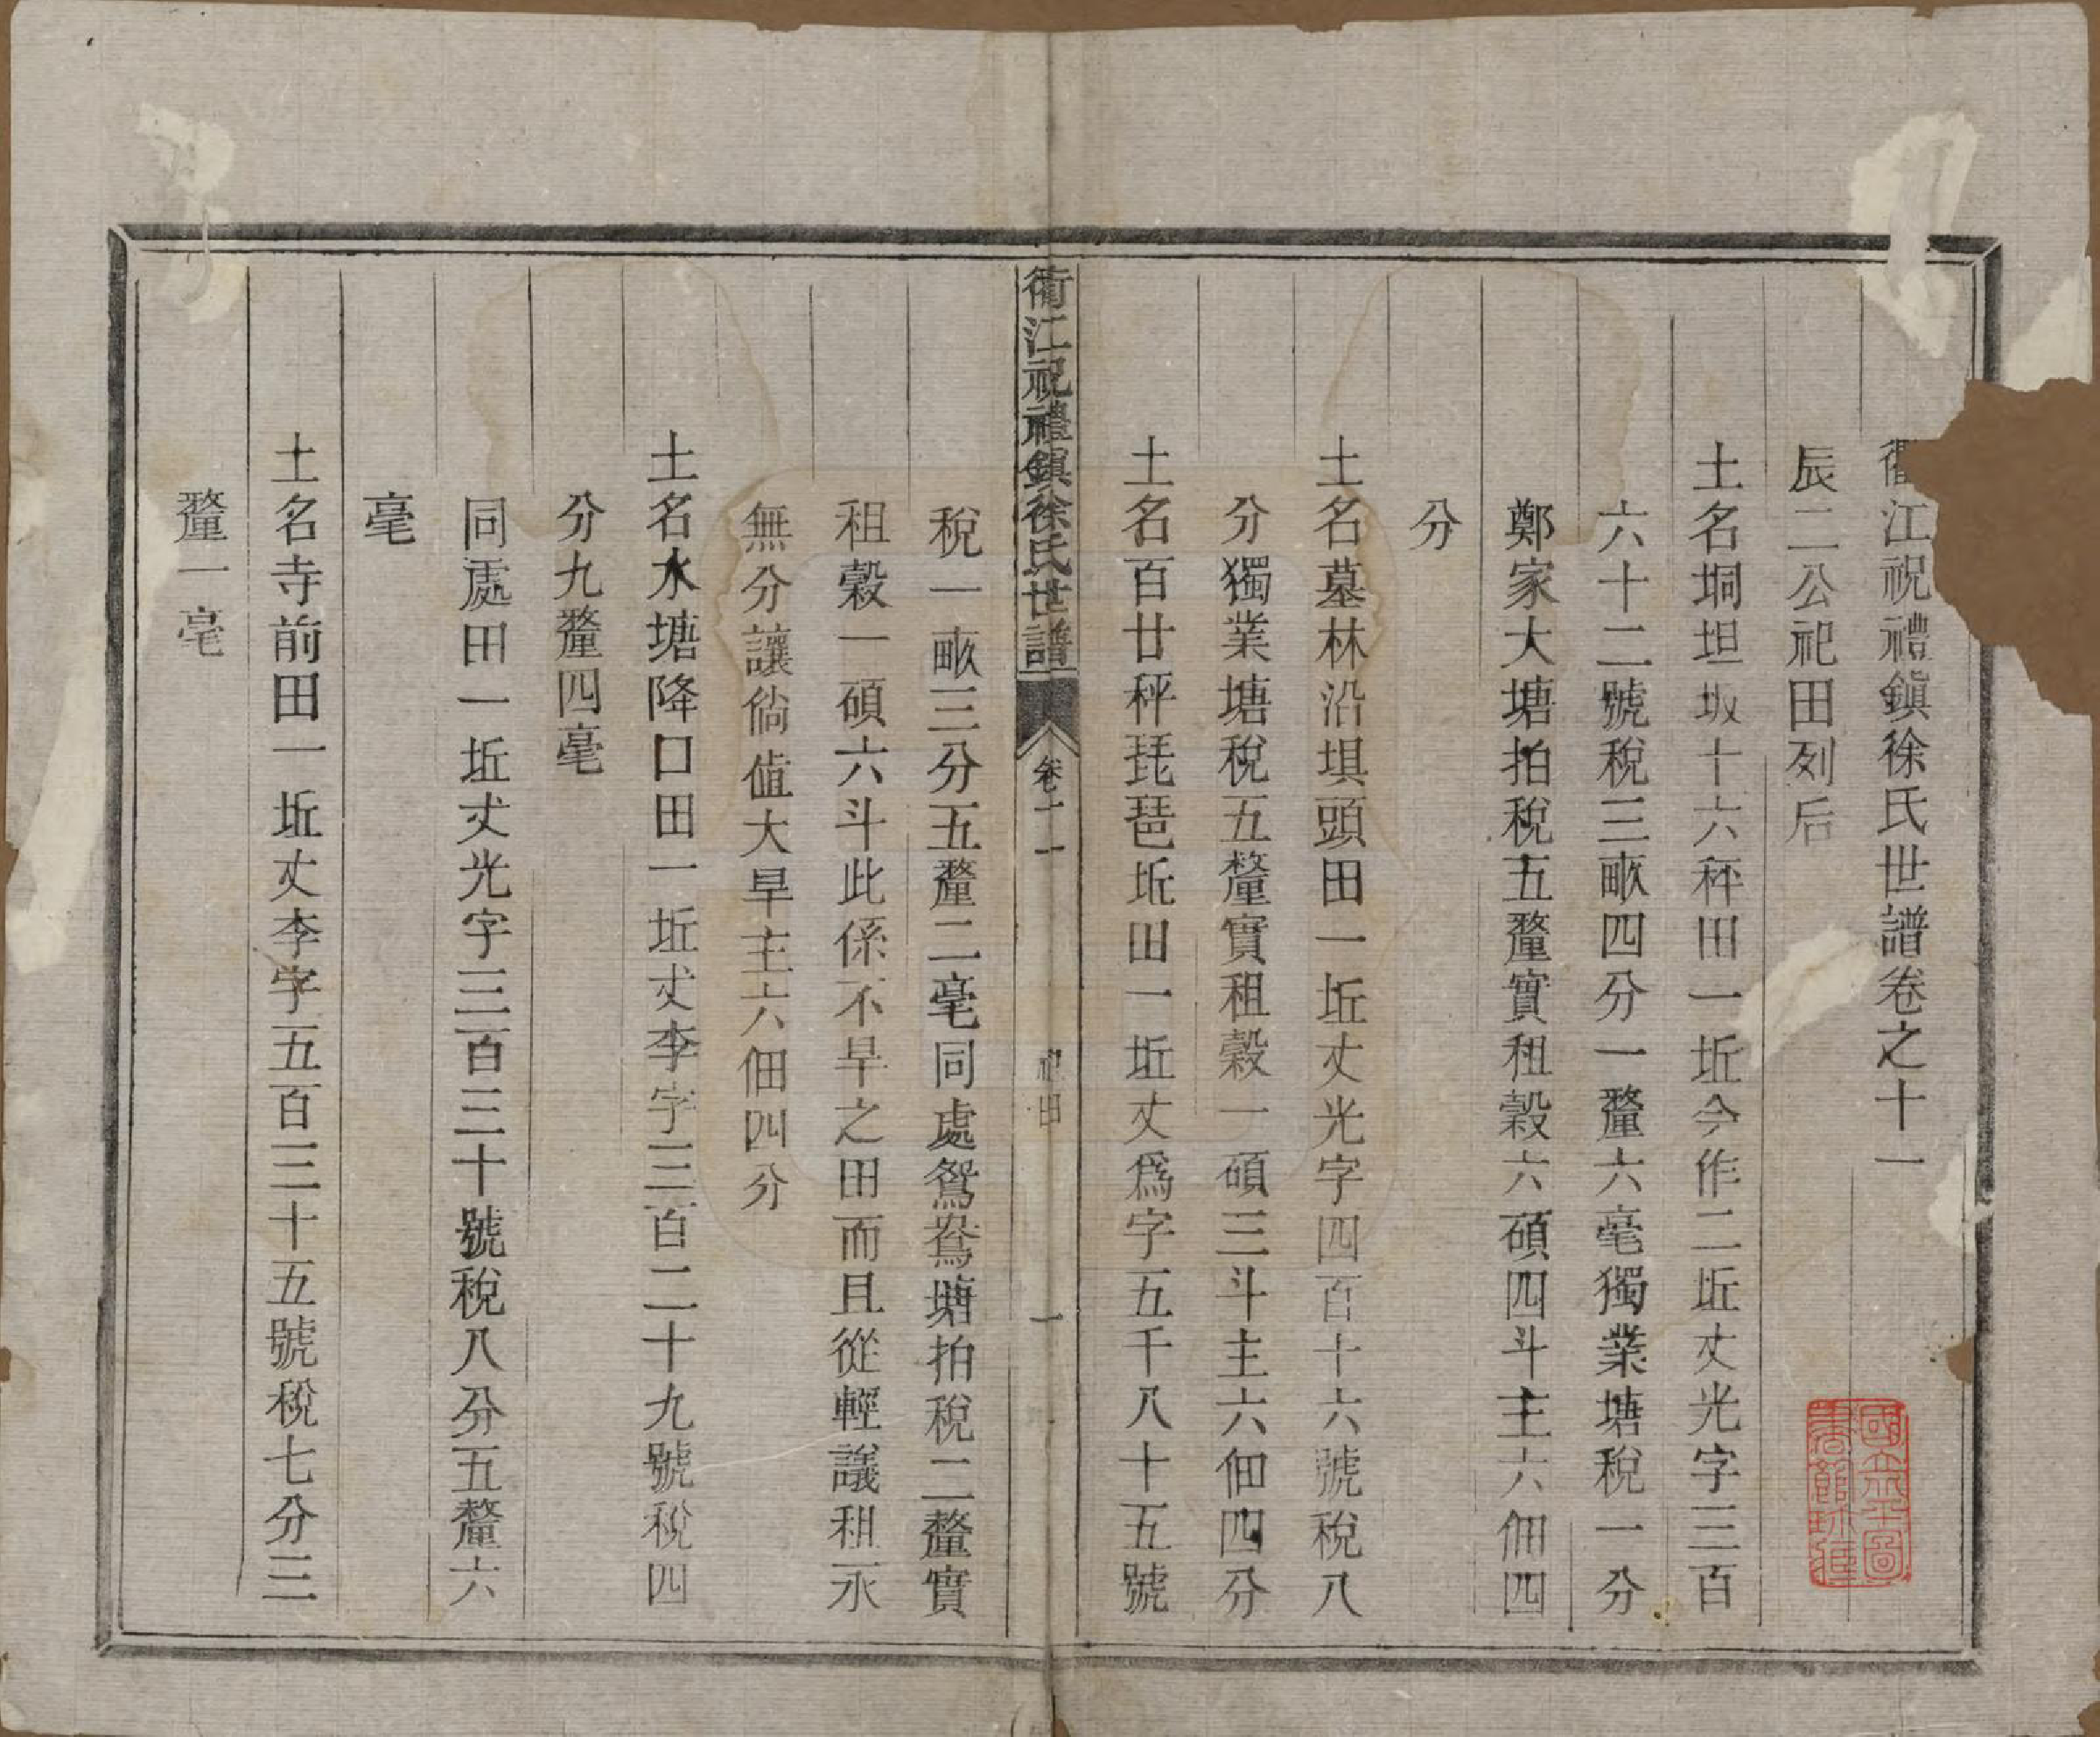 衢江祝禮鎮徐氏世譜卷之十一
辰二公祀田列后
土名垌坦坂十六秤田一坵今作二坵丈光字三百
六十二號稅三畝四分一釐六毫獨業塘稅一分
鄭家大塘拍稅五釐實租穀六碩四斗主六佃四
分
土名墓林沿垻頭田一坵丈光字四百十六號稅八
分獨業塘稅五釐實租穀一碩三斗主六佃四分
土名百廿秤琵琶坵田一坵丈爲字五千八十五號
衢江祝禮鎮徐氏世譜 卷十一 祀田 一
稅一畝三分五釐二毫同處鴛鴦塘拍稅二釐實
租穀一碩六斗此係不旱之田而且從輕議租永
無分讓倘值大旱主六佃四分
土名水塘降口田一坵丈李字三百二十九號稅四
分九釐四毫
同處田一坵丈光字三百三十號稅八分五釐六
毫
土名寺前田一坵丈李字五百三十五號稅七分三
釐一毫
國立北平圖書館珍藏